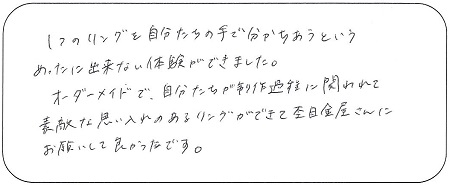 1つのリングを自分たちの手で分かちあうという
めったに出来ない体験ができました。
オーダーメイドで、自分たちが制作過程に関われて
素敵な思い入れのあるリングができて杢目金屋さんに
お願いして良かったです。